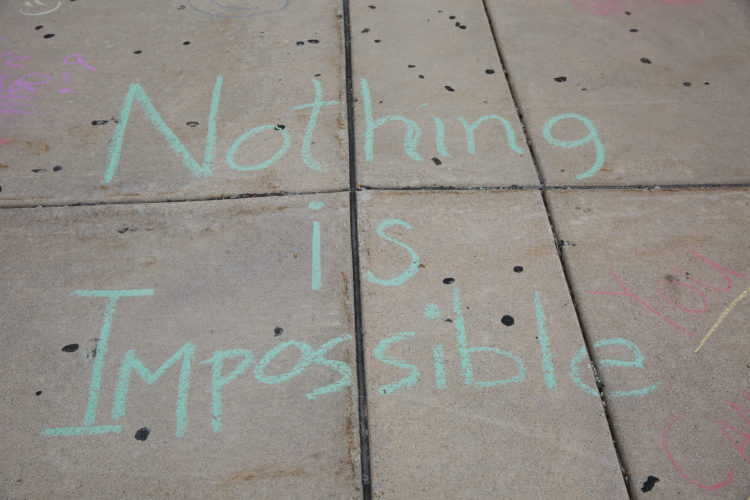 Nothing
is
Impossible
You